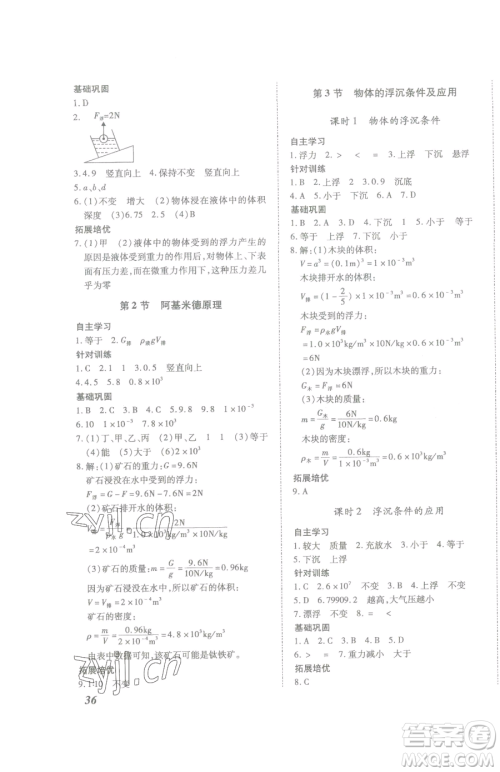 基础巩固
1. D
2. F浮=2N
3. 4.9 竖直向上
4. 不变 竖直向上
5. a,b,d
6. (1)不变 增大 (2)物体浸在液体中的体积
深度 (3)不变 (4)B
拓展培优
7. (1)甲 (2)液体中的物体受到的浮力产生的
原因是液体受到重力的作用后,对物体上下表
面的压力差,而在微重力作用下,这种压力差几
乎为零
第2节 阿基米德原理
自主学习
1. 等于 2. G排 ρ液gV排
针对训练
1. C 2. 1 1 3. 竖直向上
4. 4.5 5. 0.8×10³
基础巩固
1. B 2. C 3. B 4. D 5. B
6. 10 1×10⁻³ 7.8×10³
7. (1)丁、甲、乙、丙 1 1 等于 等于
(2)能 (3)A
8. 解:(1)矿石的重力:G=9.6N
矿石浸没在水中受到的浮力:
F浮=G-F=9.6N-7.6N=2N
(2)矿石排开水的体积:
=2×10⁻⁴m³
(3)矿石的质量:m=G/g=9.6N/10N/kg=0.96kg
因为矿石浸没在水中,所以矿石的体积:
V=V排=2×10⁻⁴m³
矿石的密度:
ρ=m/V=0.96kg/2×10⁻⁴m³=4.8×10³kg/m³
由表中数据可知,该矿石可能是钛铁矿。
拓展培优
9. 1:10 不变
36
第3节 物体的浮沉条件及应用
课时1 物体的浮沉条件
自主学习
1. 浮力 2. > < = 3. 上浮 下沉 悬浮
针对训练
1. B 2. 上浮 3. 0.8 沉底
4. A 5. 上浮 下沉
基础巩固
1. B 2. B 3. A 4. D 5. C
6. 等于 > 7. 等于 上浮
8. 解:(1)木块的体积:
V=a³=(0.1m)³=1×10⁻³m³
木块排开水的体积:
V排=(1-2/5)×1×10⁻³m³=0.6×10⁻³m³
木块受到的浮力:
F浮=ρ水gV排
=1.0×10³kg/m³×10N/kg×0.6×10⁻³m³
=6N
(2)因为木块漂浮,所以G木=F浮=6N
木块的质量:
m=G木/g=6N/10N/kg=0.6kg
木块的密度:
ρ木=m/V=0.6kg/1×10⁻³m³=0.6×10³kg/m³
拓展培优
9. A
课时2 浮沉条件的应用
自主学习
1. 较大 质量 2. 充放水 3. 小于 等于
5. 下沉 上浮
针对训练
1. C 2. 6×10⁷ 不变 3. C 4. 不变
5. D 6. 79909.2 越高,大气压越小
7. 漂浮 不变 8. = <
基础巩固
1. A 2. D 3. C 4. B 5. D
6. = < > 7. 重力减小 大于
拓展培优
8. C
zyjl.cn
zyjl.cn
作业精灵